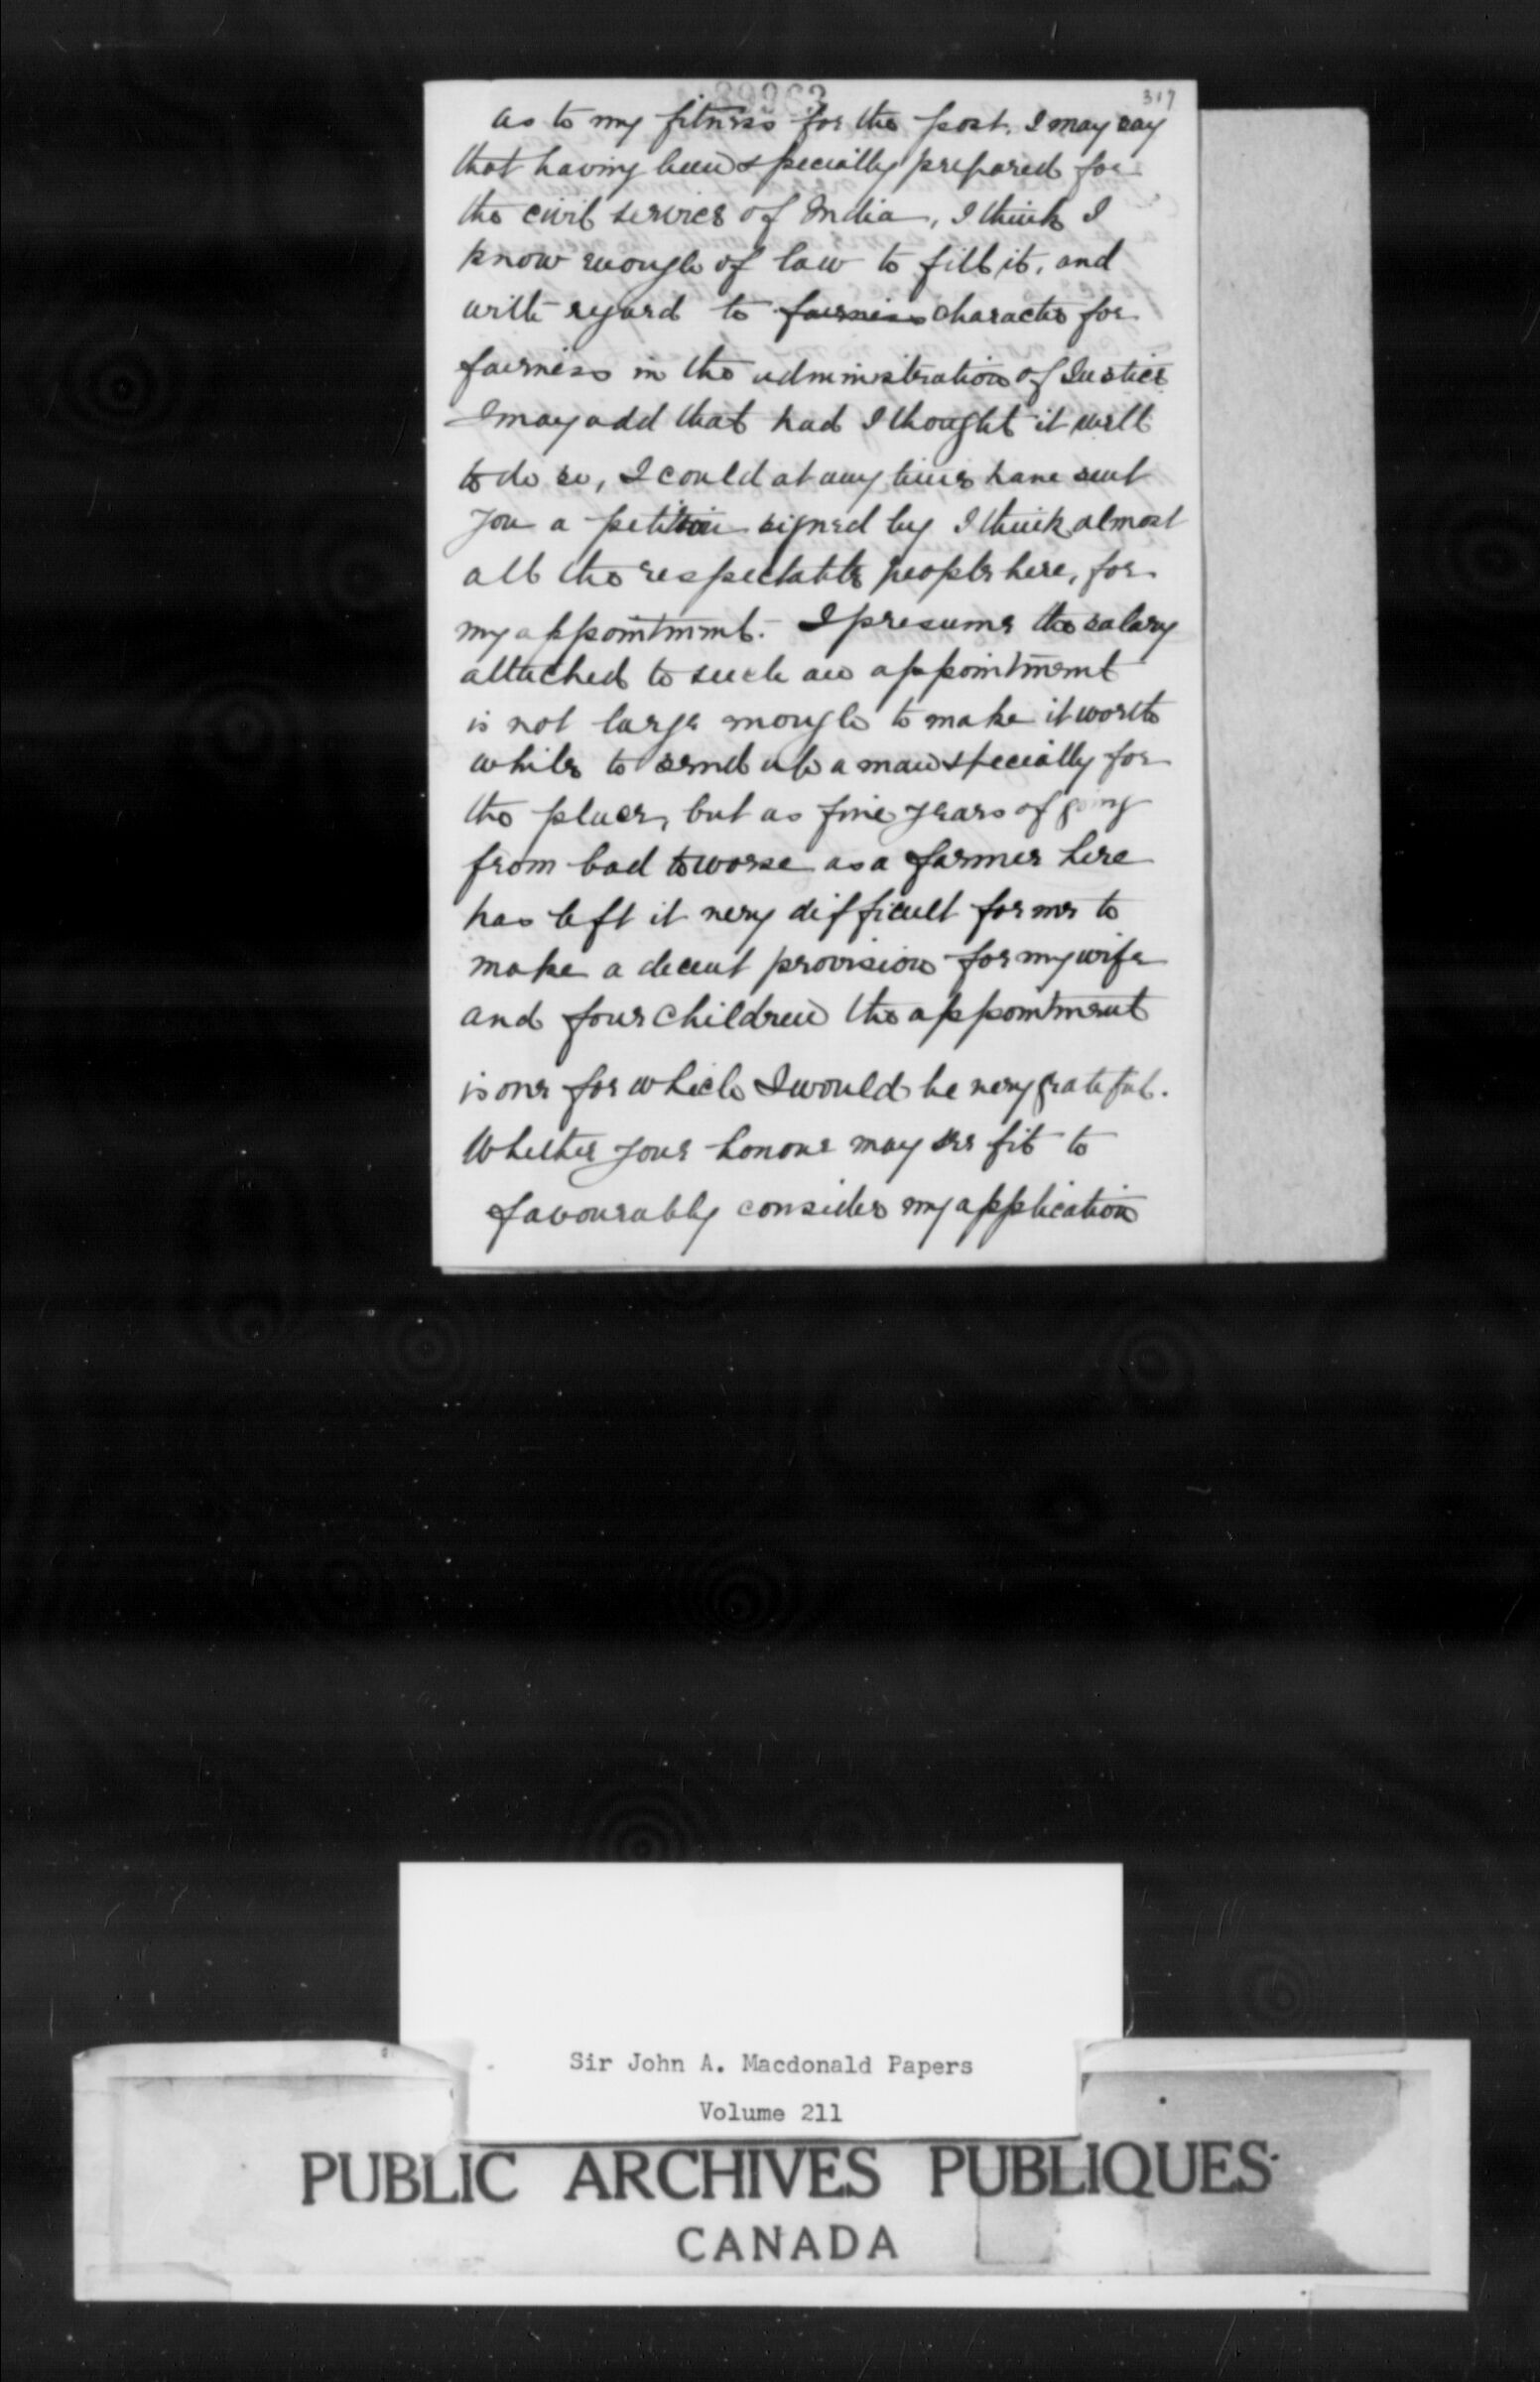 317
89963
as to my fitness for the post, I may say
that having been specially prepared for
the civil service of India, I think I
know enough of law to fill it, and
with regard to fairness character for
fairness in the administration of Justice
I may add that had I thought it well
to do so, I could at any time have sent
you a petition signed by I think almost
all the respectable people here, for
my appointment. I presume the salary
attached to such an appointment
is not large enough to make it worth
while to send up a man specially for
the place, but as five years of going
from bad to worse as a farmer here
has left it very difficult for me to
make a decent provision for my wife
and four children the appointment
is one for which I would be very grateful.
Whether your honour may see fit to
favourably consider my application
Sir John A. Macdonald Papers
Volume 211
PUBLIC ARCHIVES PUBLIQUES
CANADA